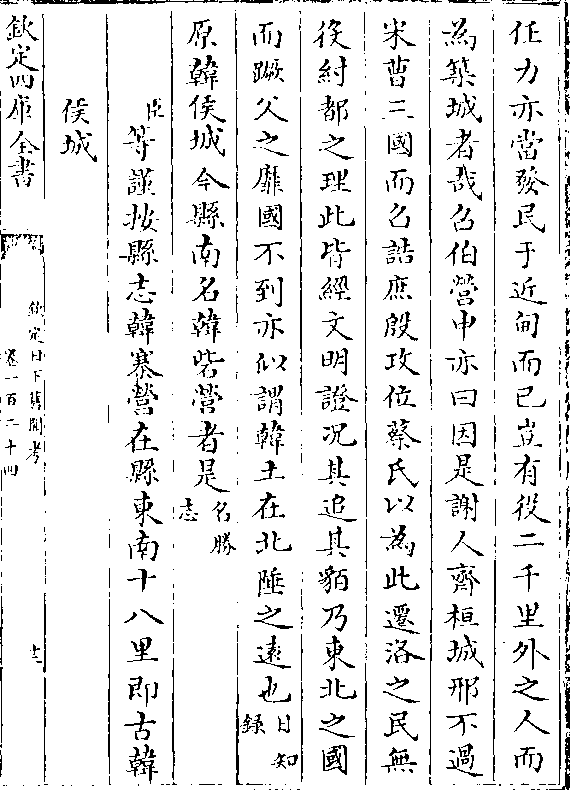 任力亦當發民于近甸而已豈有役二千里外之人而
為築城者哉召伯營申亦曰因是謝人齊桓城邢不過
宋曹三國而召誥庶殷攻位蔡氏以為此遷洛之民無
役紂都之理此皆經文明證况其追其貊乃東北之國
而蹶父之靡國不到亦似謂韓土在北陲之遠也日知錄
原韓侯城今縣南名韓砦營者是名勝志
臣等謹按縣志韓寨營在縣東南十八里即古韓
侯城
欽定四庫全書
欽定日下舊聞考
卷一百二十四